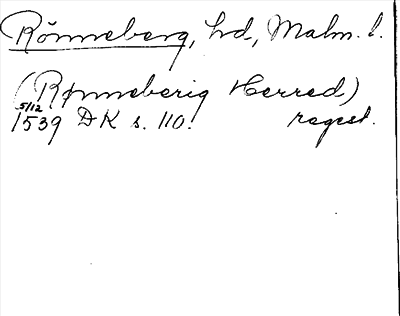 Rönneberg, hd., Malm. l.
(Rønneberig Herred)
5/12
1539 DK s. 110. regest.